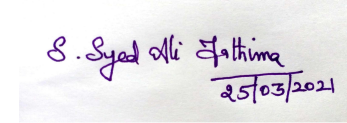 S. Syed Ali Fathima
25/03/2021